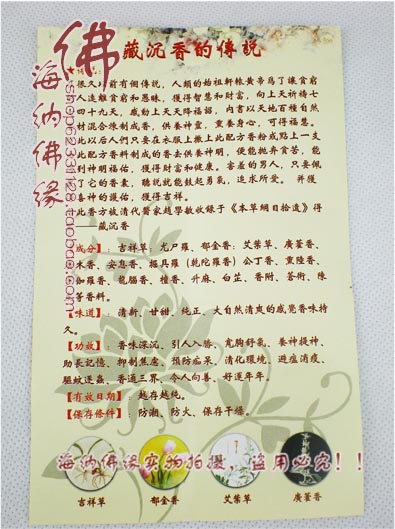 佛
海纳佛缘
shop62331128.taobao.com
藏沉香的傳説
很久以前有個傳説，人類的始祖軒轅黄帝爲了讓貧窮
人遠離貧窮和愚昧，獲得智慧和財富，向上天祈禱七
四十九天，感動上天天降福詔，内容以天地百種自然
材混合煉制成香，供養神靈，熏養身心，可得福慧。
此以后人們只要在衣服上撒上此配方香粉或點上一支
此配方香料制成的香去供養神明，便能抛弃貧苦，能
到神明福佑，獲得財富和健康。害羞的男人，只要佩
了它的香囊，聽説就能鼓起勇氣，追求所愛。 并獲
喜神的護佑，獲得吉祥。
此香方被清代醫家趙學敏收録于《本草綱目拾遺》得
——藏沉香
成分】：吉祥草：尤尸羅、郁金香：艾縈草、廣藿香、
木香、安息香、搵具羅（乾陀羅香）公丁香、熏陸香、
伽羅香、龍腦香、檀香、升麻、白芷、香附、蒼術、陳
等香料。
【味道】：清新、甘甜、純正、大自然清爽的感覺香味持
久。
【功效】：香味深沉、引人入勝、寬胸舒氣、養神提神、
助長記憶、抑制焦慮、預防痴呆、清化環境、避瘟消疫、
驅蚊逐蟲、香運三界、令人向善、好運年年。
【有效日期】：越存越純。
【保存條件】：防潮、防火、保存干燥。
海纳佛缘实物拍摄，盗用必究！！
吉祥草 郁金香 艾縈草 廣藿香